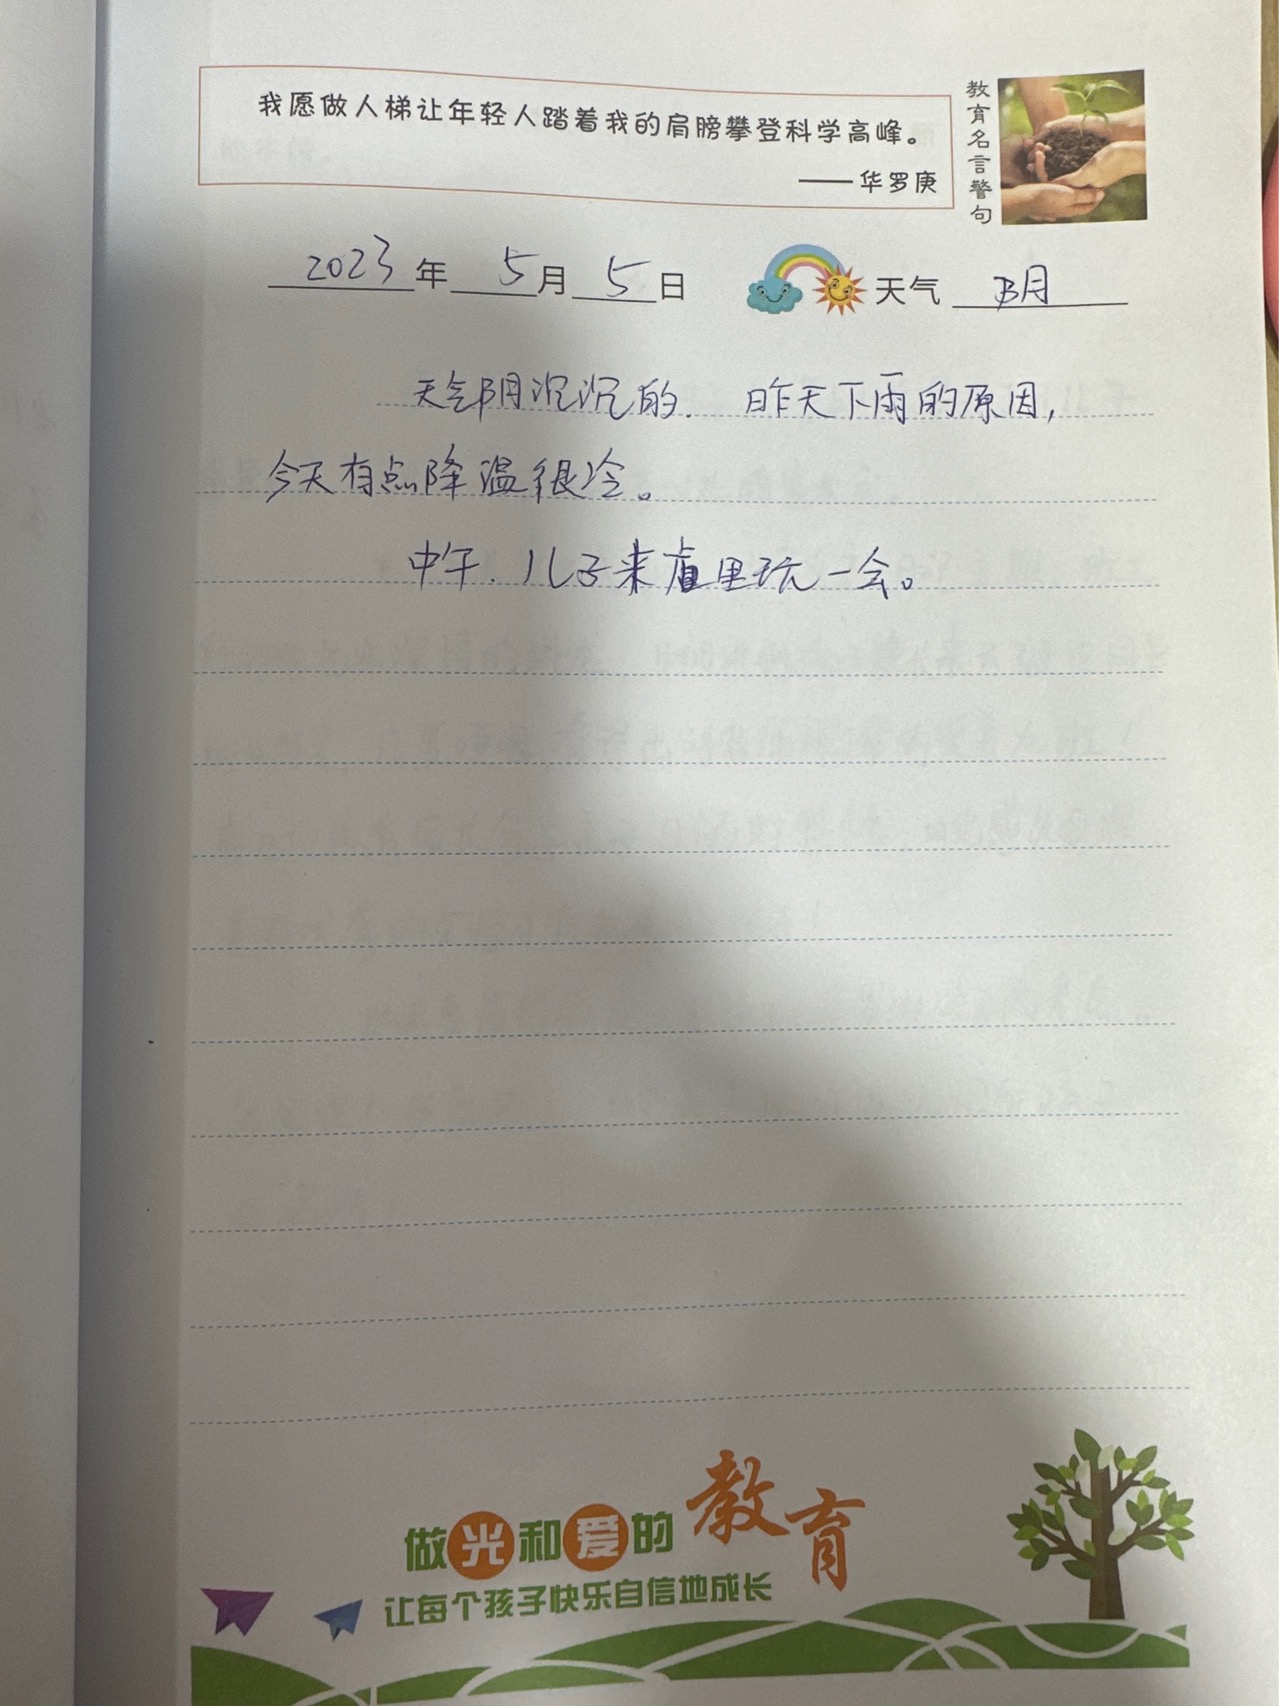 我愿做人梯让年轻人踏着我的肩膀攀登科学高峰。
——华罗庚
教育名言警句
2023年 5月 5日 天气 阴
天气阴沉沉的. 昨天下雨的原因,
今天有点降温很冷。
中午. 儿子来 里玩一会。
做光和爱的教育
让每个孩子快乐自信地成长